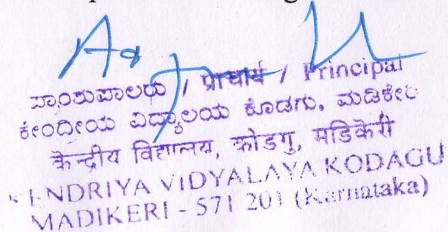 ಪ್ರಾಂಶುಪಾಲರು / प्राचार्य / Principal
ಕೇಂದ್ರೀಯ ವಿದ್ಯಾಲಯ ಕೊಡಗು, ಮಡಿಕೇರಿ
केन्द्रीय विद्यालय, कोडगु, मडिकेरी
KENDRIYA VIDYALAYA KODAGU
MADIKERI - 571 201 (Karnataka)